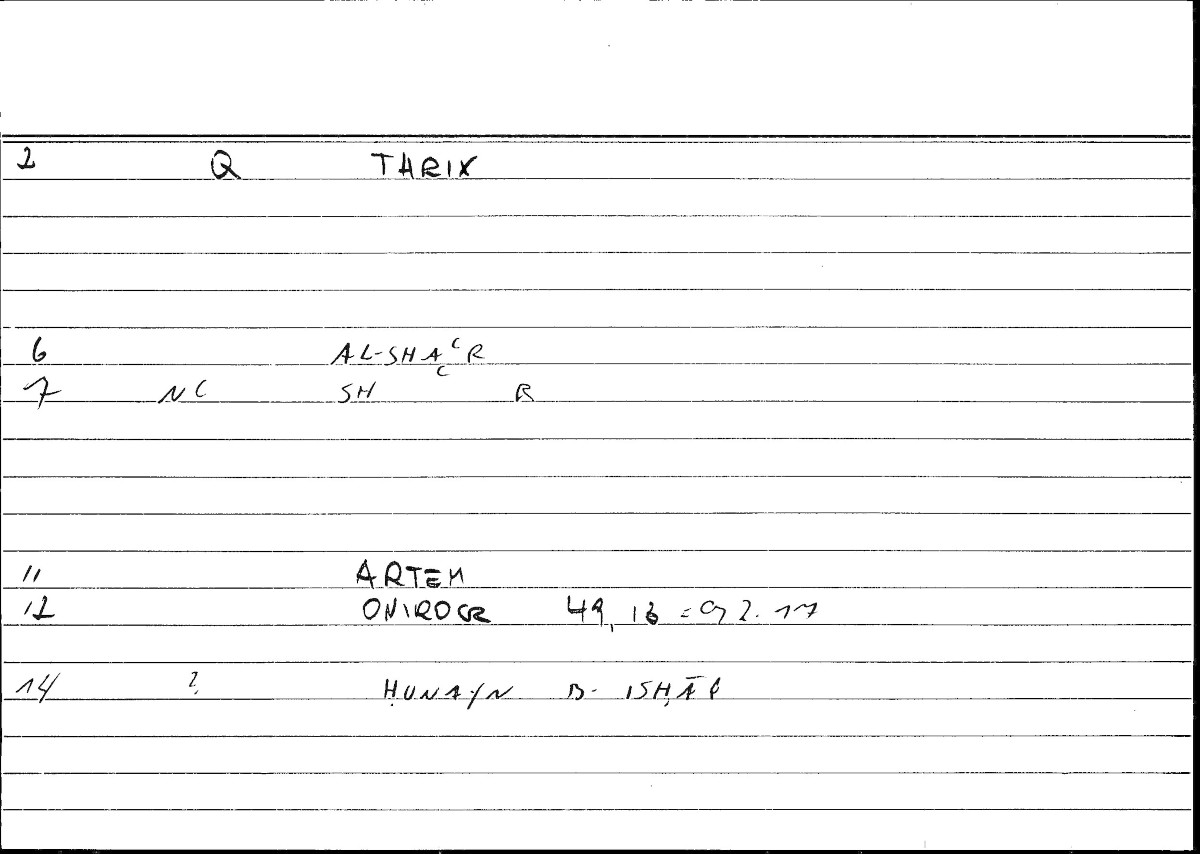 2 Q TARIX
6 AL-SHAʿR
7 NC SH R
11 ARTEM
12 ONIROCR 49, 16 =
14 ? ḤUNAYN B. ISḤĀ